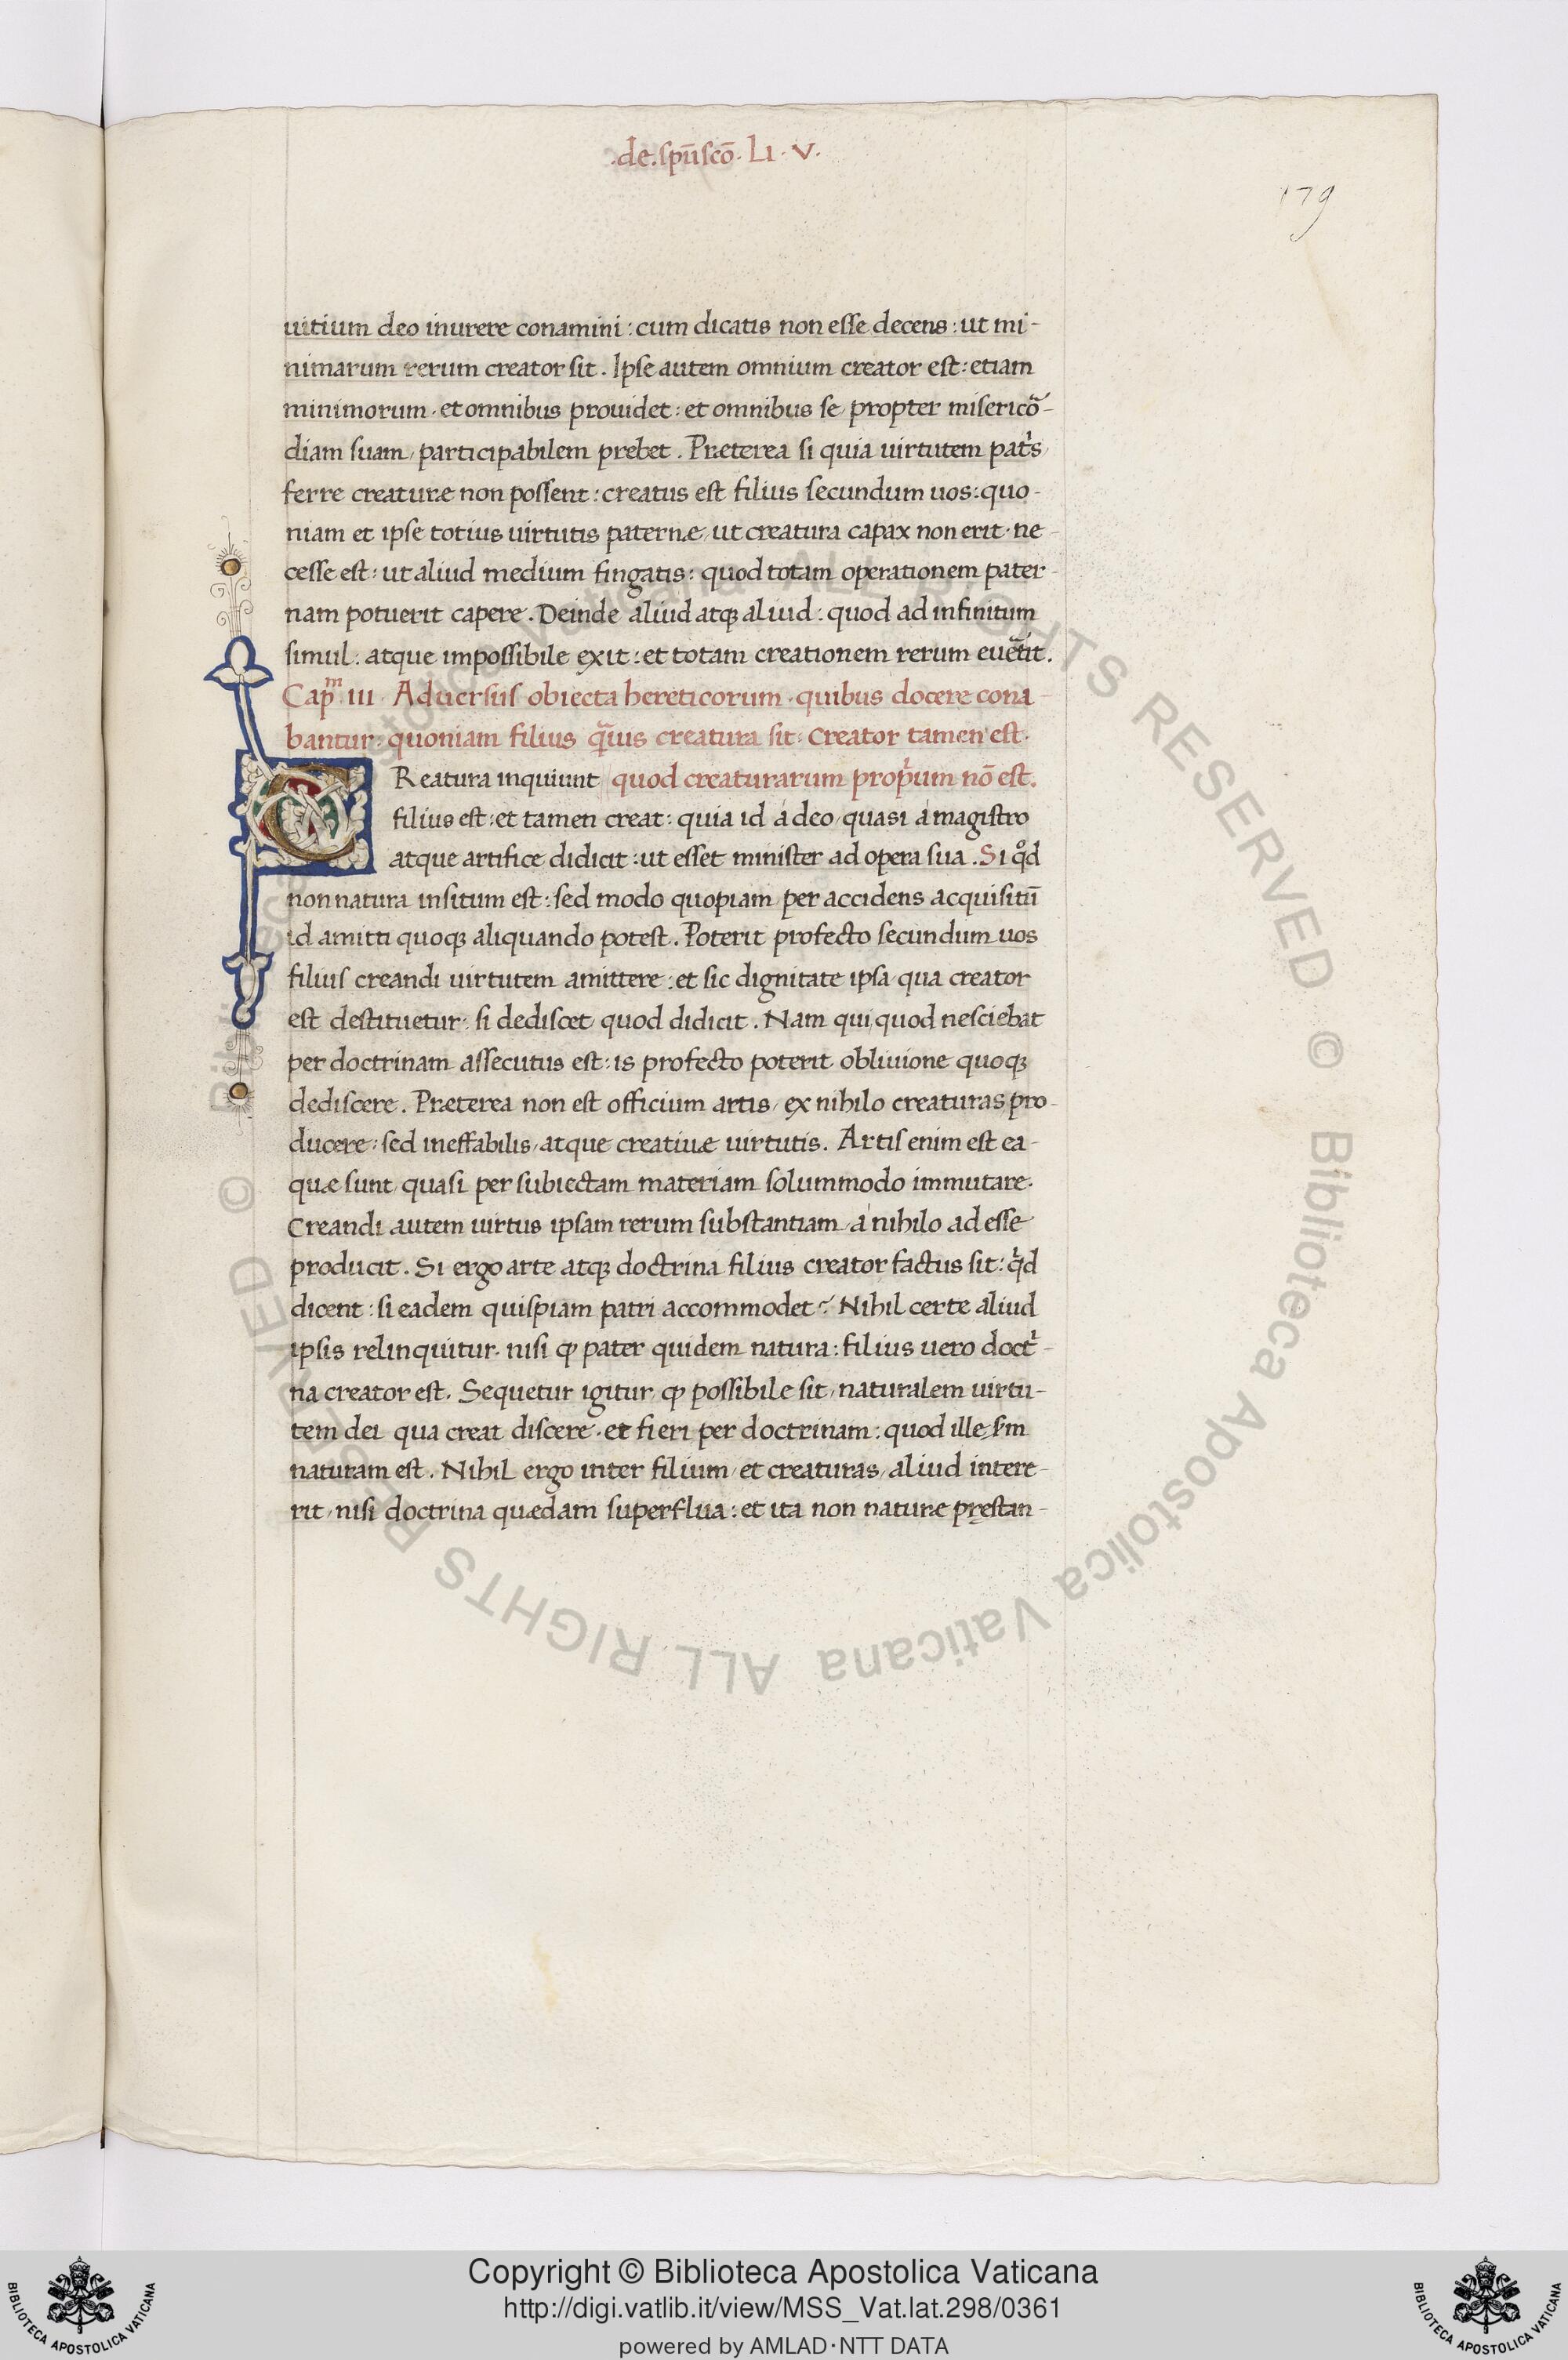 .de.sp̄usc̄o. LI. V.
179
uitium deo inurere conamini: cum dicatis non esse decens: ut mi-
nimarum rerum creator sit. Ipse autem omnium creator est: etiam
minimorum. et omnibus prouidet: et omnibus se, propter misericõ-
diam suam, participabilem prebet. Præterea si quia uirtutem patͥs,
ferre creaturæ non possent: creatus est filius secundum uos: quo-
niam et ipse totius uirtutis paternæ, ut creatura capax non erit. ne-
cesse est: ut aliud medium fingatis: quod totam operationem pater-
nam potuerit capere. Deinde aliud atqꝫ aliud: quod ad infinitum
simul. atque impossibile exit: et totam creationem rerum euẽtit.
Capᵐ. III. Aduersus obiecta hereticorum. quibus docere cona-
bantur: quoniam filius q̃uis creatura sit: creator tamen est.
CReatura inquiunt quod creaturarum propͥum nō est.
filius est: et tamen creat: quia id á deo, quasi á magistro
atque artifice didicit: ut esset minister ad opera sua. Si qͦd
non natura insitum est: sed modo quopiam per accidens acquisitū
id amitti quoqꝫ aliquando potest. Poterit profecto secundum uos
filius creandi uirtutem amittere: et sic dignitate ipsa, qua creator
est destituetur: si dediscet quod didicit. Nam qui quod nesciebat
per doctrinam assecutus est: is profecto poterit obliuione quoqꝫ
dediscere. Præterea non est officium artis, ex nihilo creaturas pro-
ducere: sed ineffabilis, atque creatiuæ uirtutis. Artis enim est ea-
quæ sunt, quasi per subiectam materiam solummodo immutare.
Creandi autem uirtus ipsam rerum substantiam, á nihilo ad esse
producit. Si ergo arte atqꝫ doctrina filius creator factus sit: qͥd
dicent: si eadem quispiam patri accommodet? Nihil certe aliud
ipsis relinquitur. nisi ꝙ pater quidem natura: filius uero doctͥ-
na creator est. Sequetur igitur, ꝙ possibile sit, naturalem uirtu-
tem dei qua creat discere. et fieri per doctrinam: quod ille, sm
naturam est. Nihil ergo inter filium, et creaturas, aliud intere-
rit, nisi doctrina quædam superflua: et ita non naturæ pręstan-
© Biblioteca Apostolica Vaticana ALL RIGHTS RESERVED
© Biblioteca Apostolica Vaticana ALL RIGHTS RESERVED
Copyright © Biblioteca Apostolica Vaticana
http://digi.vatlib.it/view/MSS_Vat.lat.298/0361
powered by AMLAD·NTT DATA
BIBLIOTECA APOSTOLICA VATICANA
BIBLIOTECA APOSTOLICA VATICANA